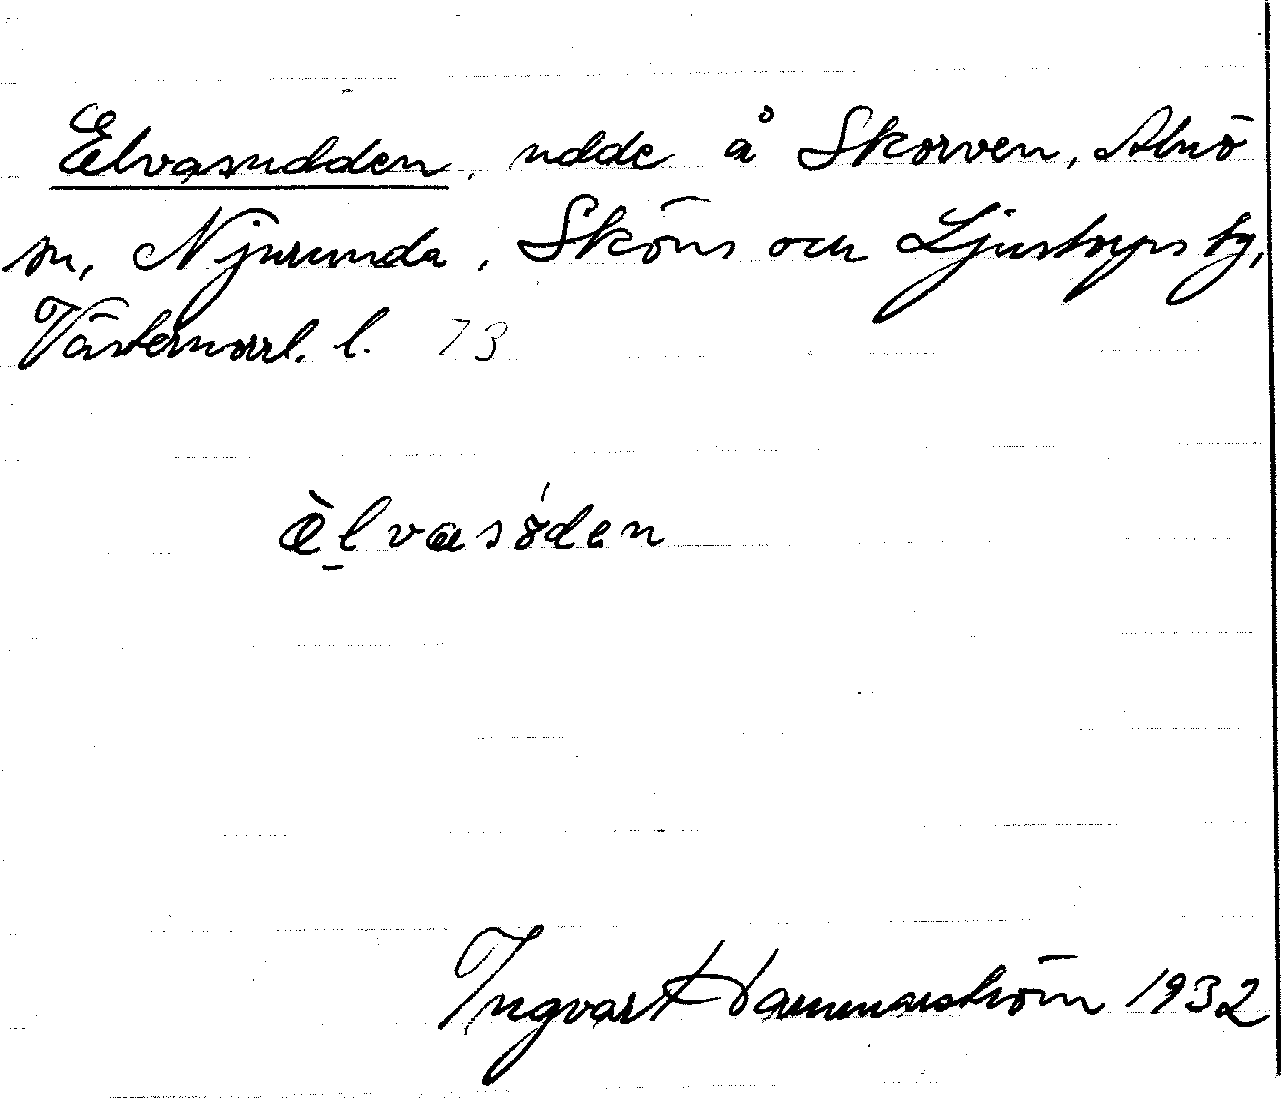 Elvasudden, udde å Skorven, Alnö
sn, Njurunda, Sköns och Ljustorps tg,
Västernorrl. l. 73
æ̀l̠vasö́den
Ingvar Hammarström 1932